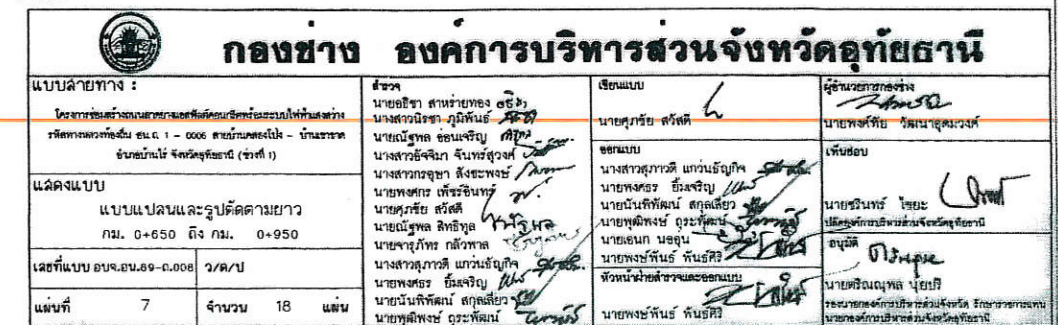 กองช่าง องค์การบริหารส่วนจังหวัดอุทัยธานี
แบบสายทาง :
โครงการซ่อมสร้างถนนลาดยางแอสฟัลต์คอนกรีตพร้อมระบบไฟฟ้าแสงสว่าง
รหัสทางหลวงท้องถิ่น อน.ถ. 1 - 0006 สายบ้านคลองโป่ง - บ้านเขาราด
อำเภอบ้านไร่ จังหวัดอุทัยธานี (ช่วงที่ 1)
แสดงแบบ
แบบแปลนและรูปตัดตามยาว
กม. 0+650 ถึง กม. 0+950
เลขที่แบบ อบจ.อน.69-ถ.008 ว/ด/ป
แผ่นที่ 7 จำนวน 18 แผ่น
สำรวจ
นายอธิชา สาหร่ายทอง
นางสาวนิรชา ภูมิพันธ์
นายณัฐพล อ่อนเจริญ
นางสาวอัจจิมา จันทร์สุวงศ์
นางสาวกรอุษา สังชะพงษ์
นายพงศกร เพ็ชรอินทร์
นายศุภชัย สวัสดี
นายณัฐพล สิทธิทูล
นายจารุภัทร กลัวพาล
นางสาวสุภาวดี แกว่นธัญกิจ
นายพงศธร ยิ้มเจริญ
นายนันทิพัฒน์ สกุลเลี่ยว
นายพุฒิพงษ์ ถุระพัฒน์
เขียนแบบ
นายศุภชัย สวัสดี
ออกแบบ
นางสาวสุภาวดี แกว่นธัญกิจ
นายพงศธร ยิ้มเจริญ
นายนันทิพัฒน์ สกุลเลี่ยว
นายพุฒิพงษ์ ถุระพัฒน์
นายเอนก นออุ่น
นายพงษ์พันธ์ พันธุ์ศิริ
หัวหน้าฝ่ายสำรวจและออกแบบ
นายพงษ์พันธ์ พันธุ์ศิริ
ผู้อำนวยการกองช่าง
นายพงศ์ทัย วัฒนาอุดมวงศ์
เห็นชอบ
นายชรินทร์ ไชยะ
ปลัดองค์การบริหารส่วนจังหวัดอุทัยธานี
อนุมัติ
นายตริณณุพล นุ้ยปรี
รองนายกองค์การบริหารส่วนจังหวัด รักษาราชการแทน
นายกองค์การบริหารส่วนจังหวัดอุทัยธานี